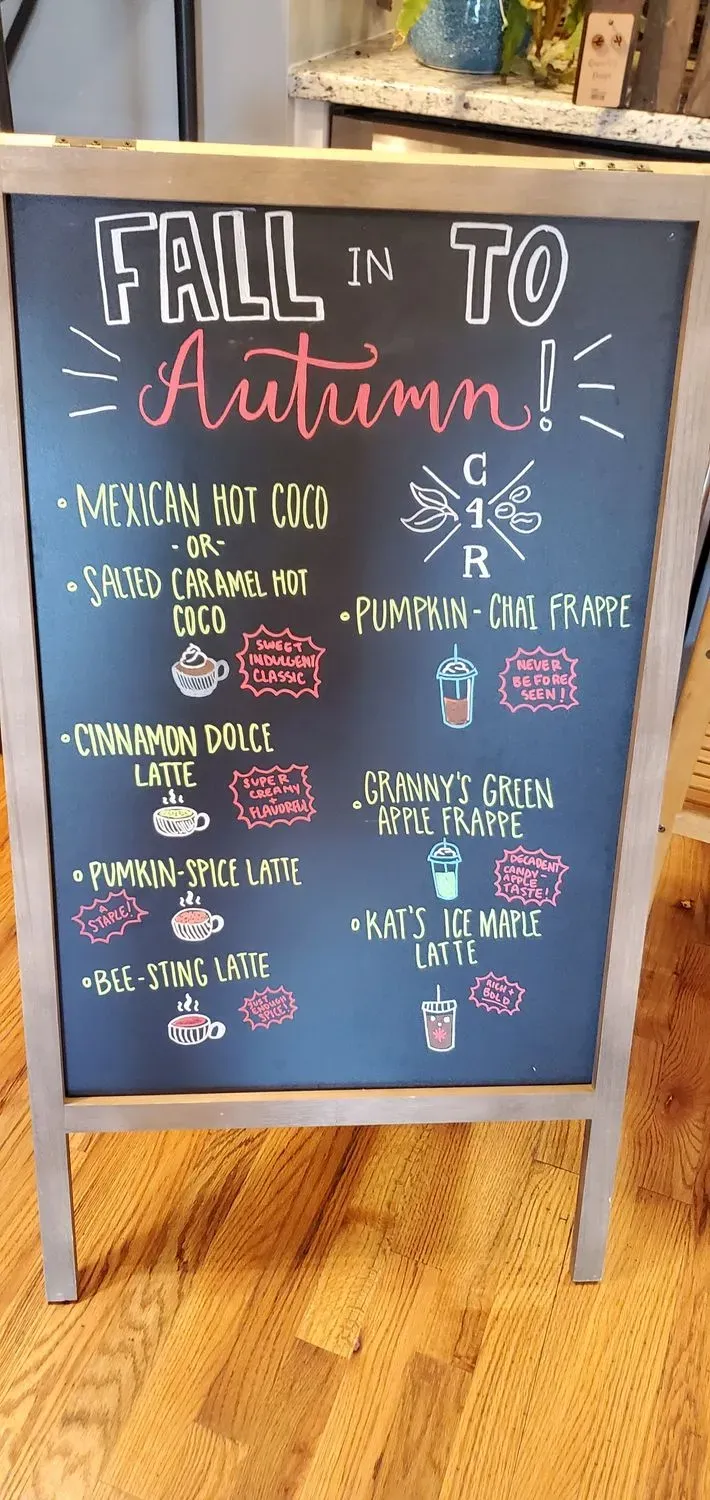 FALL IN TO
Autumn!
° MEXICAN HOT COCO
-OR-
° SALTED CARAMEL HOT
COCO
SWEET
INDULGENT
CLASSIC
° CINNAMON DOLCE
LATTE
SUPER
CREAMY
+
FLAVORFUL
° PUMKIN-SPICE LATTE
A
STAPLE!
° BEE-STING LATTE
JUST
ENOUGH
SPICE!
C
4
R
° PUMPKIN-CHAI FRAPPE
NEVER
BEFORE
SEEN!
° GRANNY'S GREEN
APPLE FRAPPE
DECADENT
CANDY-
APPLE
TASTE!
° KAT'S ICE MAPLE
LATTE
RICH +
BOLD